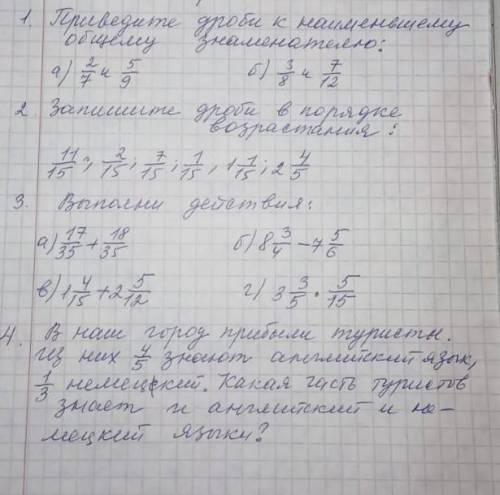 1. Приведите дроби к наименьшему
общему знаменателю:
а) 2/7 и 5/9   б) 3/8 и 7/12
2. Запишите дроби в порядке
возрастания:
11/15; 2/15; 7/15; 1/15, 1 1/15; 2 4/5
3. Выполни действия:
а) 17/35 + 18/35   б) 8 3/4 - 7 5/6
в) 1 4/15 + 2 5/12   г) 3 3/5 · 5/15
4. В наш город прибыли туристы.
Из них 4/5 знают английский язык,
1/3 немецкий. Какая часть туристов
знает и английский и не-
мецкий языки?